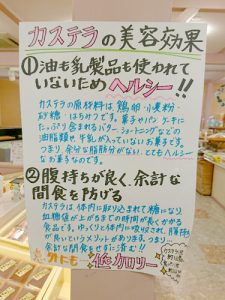 カステラの美容効果
①油も乳製品も使われて
いないため ヘルシー!!
カステラの原材料は 鶏卵・小麦粉・
砂糖・はちみつです。菓子やパン・ケーキに
たっぷり含まれるバター・ショートニングなどの
油脂類や、牛乳が入っていないお菓子です。
つまり、余分な脂肪分がない、とてもヘルシー
なお菓子なのです。
②腹持ちが良く、余計な
間食を防げる
カステラは、体内に取り込まれて糖になり
血糖値が上がるまでの時間が長くかかる
食品です。ゆっくりと体内に吸収され、腹持ち
が良いというメリットがあります。つまり
余計な間食をせずに済む!!
外にも… 低カロリー
カステラは